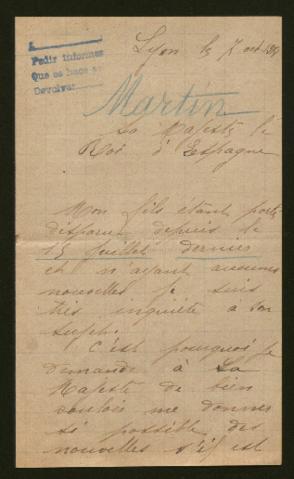 A
Pedir informes
Que se hace
Devolver
Lyon le 7 oct
Martin
Sa Majesté le
Roi d'Espagne
Mon fils étant porté
disparu depuis le
15 Juillet dernier
et n'ayant aucunes
nouvelles je suis
très inquiète a son
sujet.
C'est pourquoi je
demande à Sa
Majesté de bien
vouloir me donner
si possible des
nouvelles s'il est